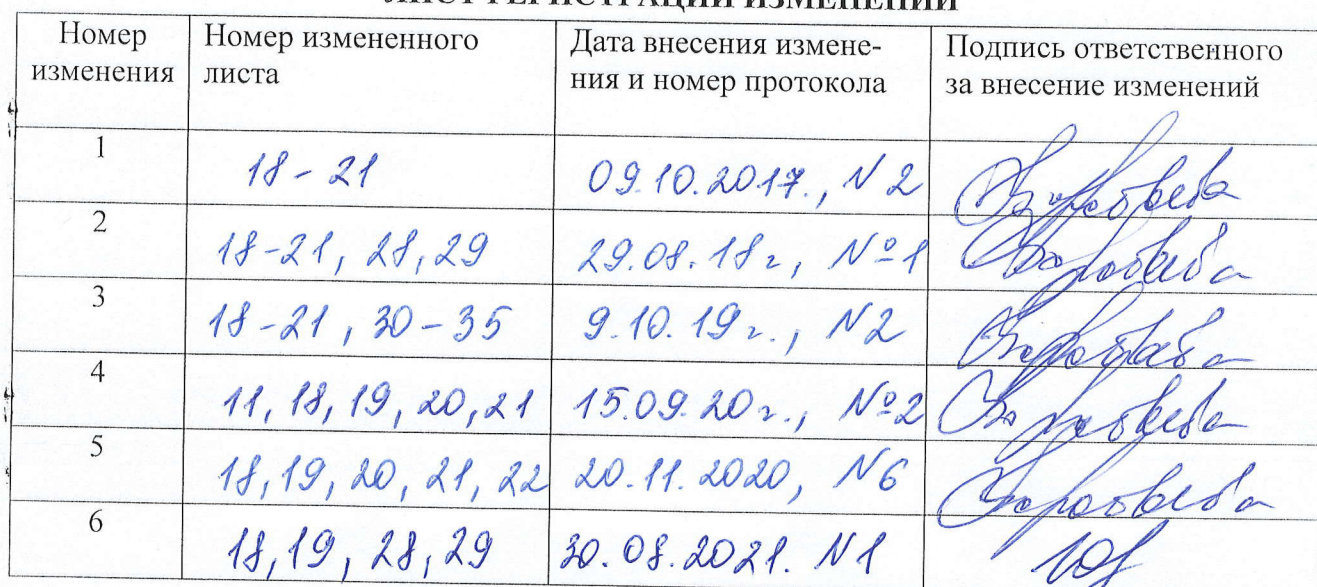 ЛИСТ РЕГИСТРАЦИИ ИЗМЕНЕНИЙ
Номер изменения Номер измененного листа Дата внесения измене- ния и номер протокола Подпись ответственного за внесение изменений
1 18-21 09.10.2017., N 2
2 18-21, 28, 29 29.08.18г, №1
3 18-21, 30-35 9.10.19г., N2
4 11, 18, 19, 20, 21 15.09.20г., №2
5 18, 19, 20, 21, 22 20.11.2020, N6
6 18, 19, 28, 29 30.08.2021. N1